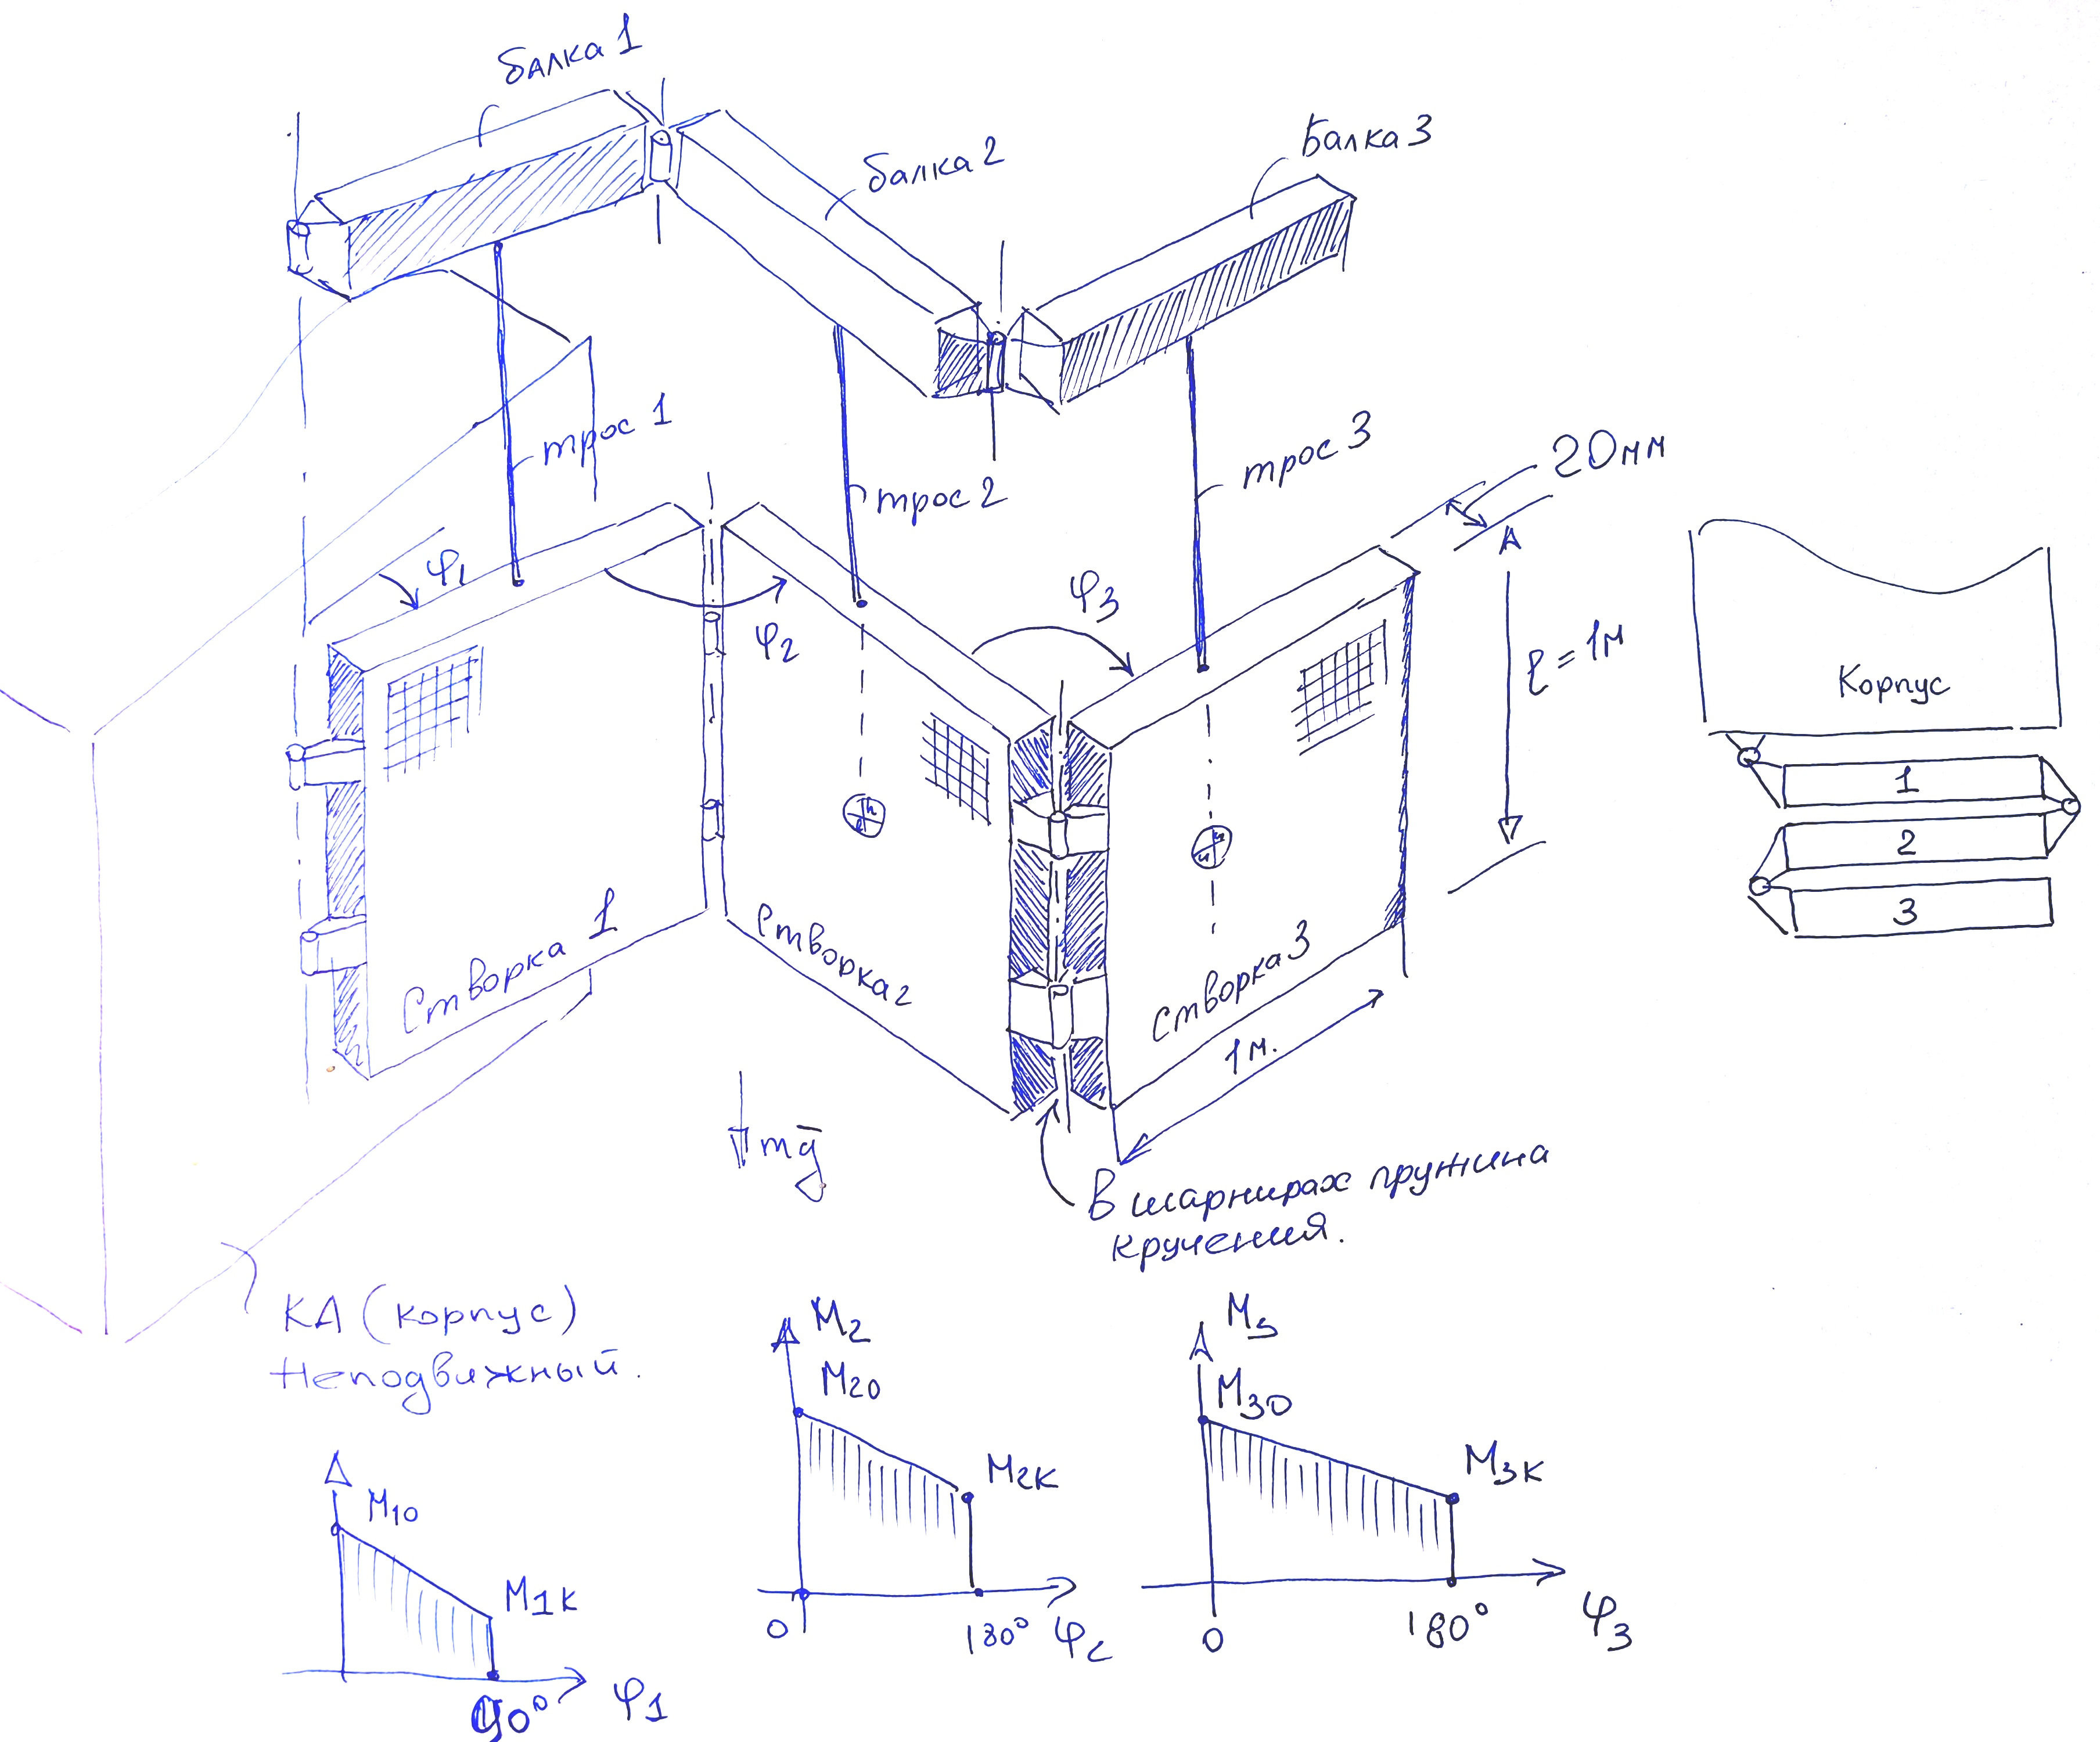 балка 1
балка 2
Балка 3
трос 1
трос 2
трос 3
20мм
φ1
φ2
φ3
ℓ = 1м
Корпус
1
2
3
Створка 1
Створка 2
Створка 3
1 м.
mg
В шарнирах пружина
кручения.
КА (корпус)
Неподвижный.
M10
M1К
90°
φ1
M2
M20
M2К
0
180°
φ2
M30
M3К
0
180°
φ3